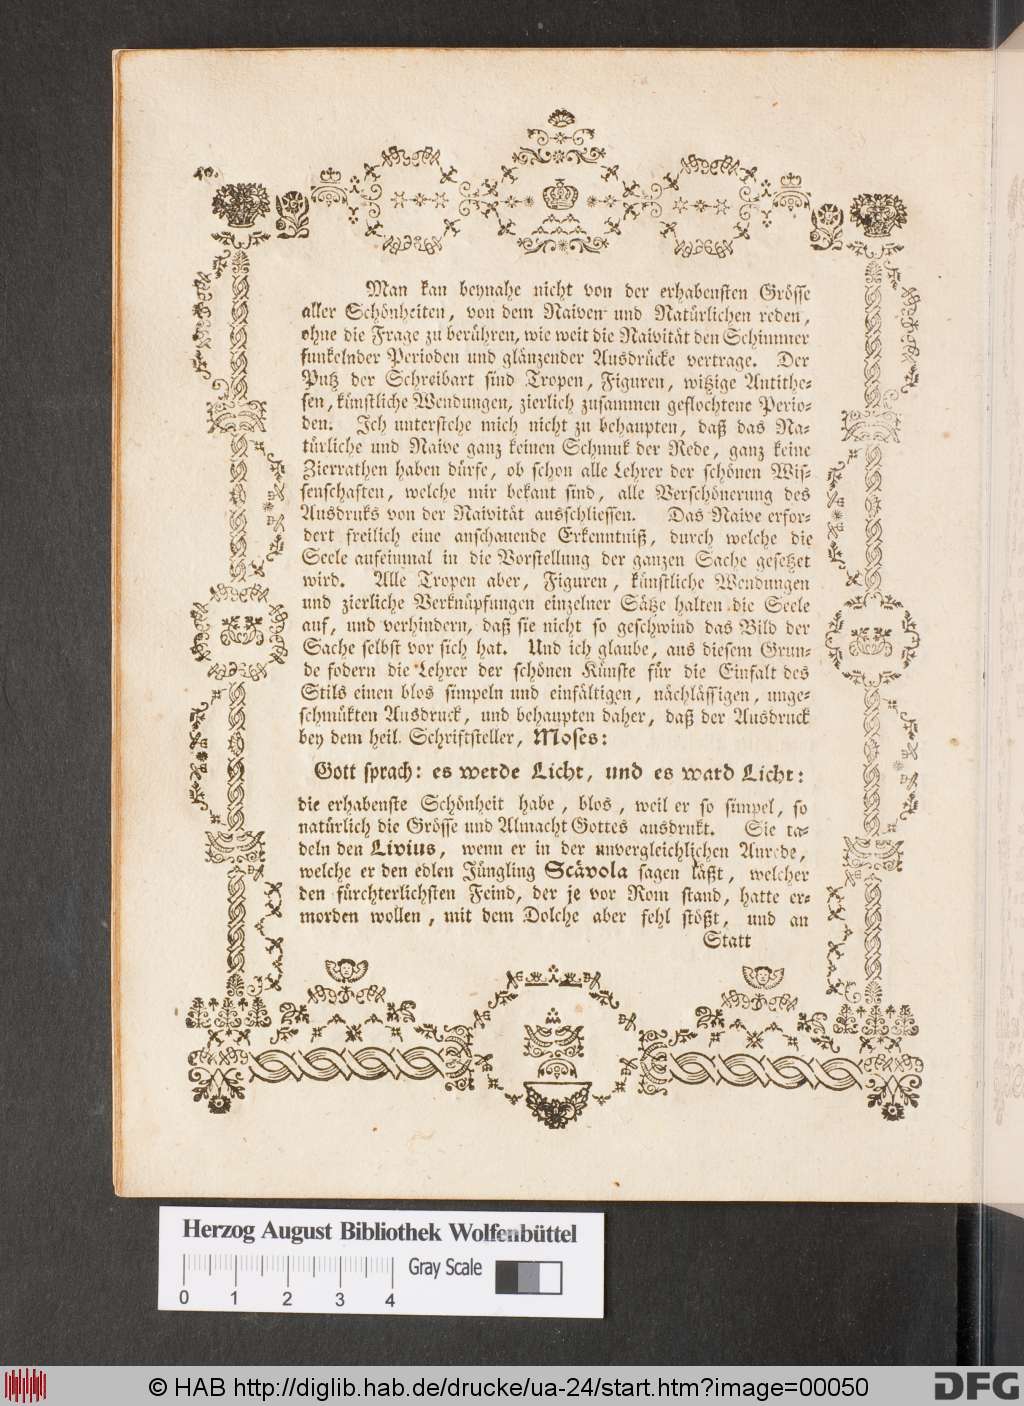 Man kan beynahe nicht von der erhabensten Grösse
aller Schönheiten, von dem Naiven und Natürlichen reden,
ohne die Frage zu berühren, wie weit die Naivität den Schimmer
funkelnder Perioden und glänzender Ausdrücke vertrage. Der
Putz der Schreibart sind Tropen, Figuren, witzige Antithe-
sen, künstliche Wendungen, zierlich zusammen geflochtene Perio-
den. Ich unterstehe mich nicht zu behaupten, daß das Na-
türliche und Naive ganz keinen Schmuk der Rede, ganz keine
Zierrathen haben dürfe, ob schon alle Lehrer der schönen Wis-
senschaften, welche mir bekant sind, alle Verschönerung des
Ausdruks von der Naivität ausschliessen. Das Naive erfor-
dert freilich eine anschauende Erkenntniß, durch welche die
Seele aufeinmal in die Vorstellung der ganzen Sache gesetzet
wird. Alle Tropen aber, Figuren, künstliche Wendungen
und zierliche Verknüpfungen einzelner Sätze halten die Seele
auf, und verhindern, daß sie nicht so geschwind das Bild der
Sache selbst vor sich hat. Und ich glaube, aus diesem Grun-
de fodern die Lehrer der schönen Künste für die Einfalt des
Stils einen blos simpeln und einfältigen, nächlässigen, unge-
schmükten Ausdruck, und behaupten daher, daß der Ausdruck
bey dem heil. Schriftsteller, Moses:
Gott sprach: es werde Licht, und es ward Licht:
die erhabenste Schönheit habe, blos, weil er so simpel, so
natürlich die Grösse und Almacht Gottes ausdrukt. Sie ta-
deln den Livius, wenn er in der unvergleichlichen Anrede,
welche er den edlen Jüngling Scävola sagen läßt, welcher
den fürchterlichsten Feind, der je vor Rom stand, hatte er-
morden wollen, mit dem Dolche aber fehl stößt, und an
Statt
Herzog August Bibliothek Wolfenbüttel
Gray Scale
0 1 2 3 4
© HAB http://diglib.hab.de/drucke/ua-24/start.htm?image=00050
DFG